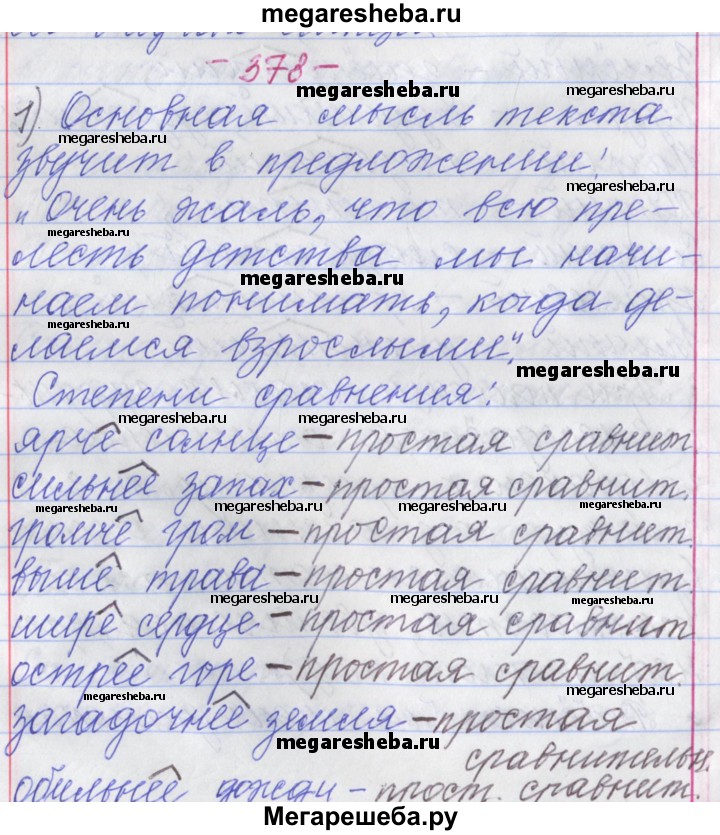 megaresheba.ru
- 378 -
megaresheba.ru
1) Основная мысль текста
megaresheba.ru
звучит в предложении:
megaresheba.ru
„Очень жаль, что всю пре-
лесть детства мы начи-
megaresheba.ru
наем понимать, когда де-
megaresheba.ru
лаемся взрослыми".
megaresheba.ru
Степени сравнения:
megaresheba.ru megaresheba.ru
ярче солнце - простая сравнит.
сильнее запах - простая сравнит.
megaresheba.ru
громче гром - простая сравнит.
выше трава - простая сравнит.
megaresheba.ru megaresheba.ru megaresheba.ru
шире сердце - простая сравнит.
острее горе - простая сравнит.
megaresheba.ru megaresheba.ru
загадочнее земля - простая
megaresheba.ru
сравнительн.
обильнее дожди - прост. сравнит.
Мегарешеба.ру